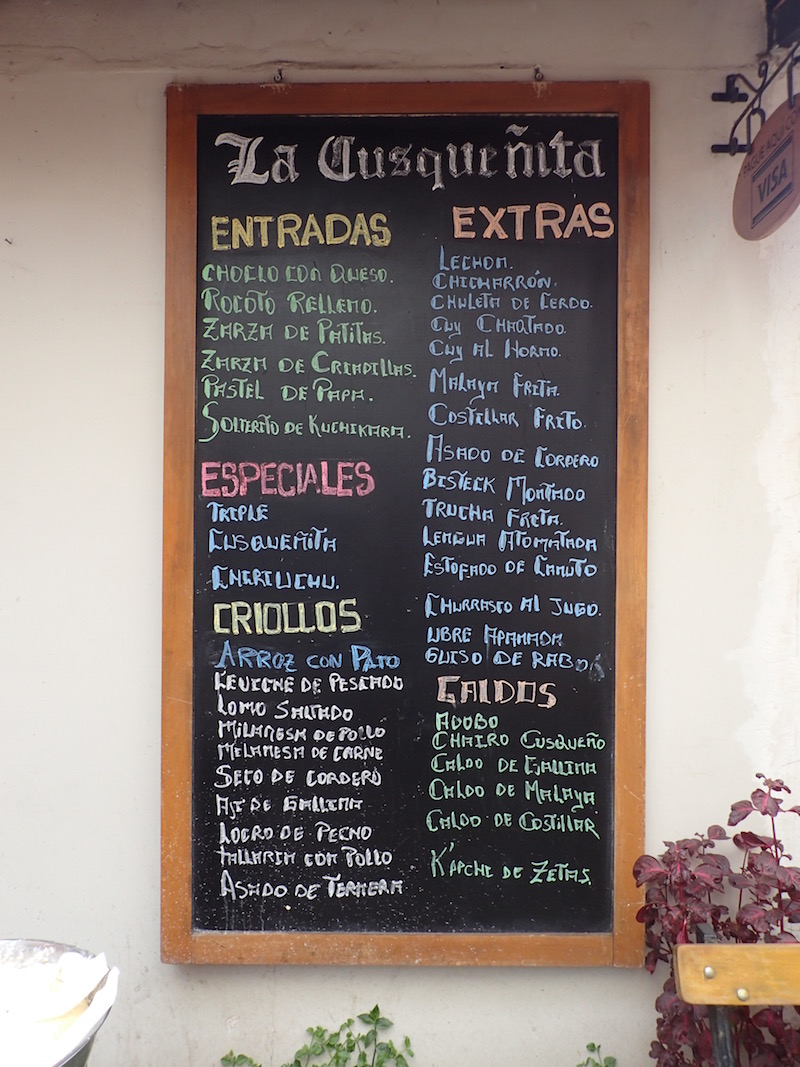 La Cusqueñita
ENTRADAS
CHOCLO CON QUESO.
ROCOTO RELLENO.
ZARZA DE PATITAS.
ZARZA DE CRIADILLAS.
PASTEL DE PAPA.
SOLTERITO DE KUCHIKARA.
ESPECIALES
TRIPLE
CUSQUEÑITA
CHIRIUCHU.
CRIOLLOS
ARROZ CON PATO
CEVICHE DE PESCADO
LOMO SALTADO
MILANESA DE POLLO
MELANESA DE CARNE
SECO DE CORDERO
AJI DE GALLINA
LOCRO DE PECHO
TALLARIN CON POLLO
ASADO DE TERNERA
EXTRAS
LECHON.
CHICHARRÓN.
CHULETA DE CERDO.
CUY CHACTADO.
CUY AL HORNO.
MALAYA FRITA.
COSTILLAR FRITO.
ASADO DE CORDERO
BISTECK MONTADO
TRUCHA FRITA.
LENGUA ATOMATADA
ESTOFADO DE CANUTO
CHURRASCO AL JUGO.
UBRE APANADA
GUISO DE RABO
CALDOS
ADOBO
CHAIRO CUSQUEÑO
CALDO DE GALLINA
CALDO DE MALAYA
CALDO DE COSTILLAR
K'APCHI DE ZETAS.
PAGUE AQUI CO
VISA